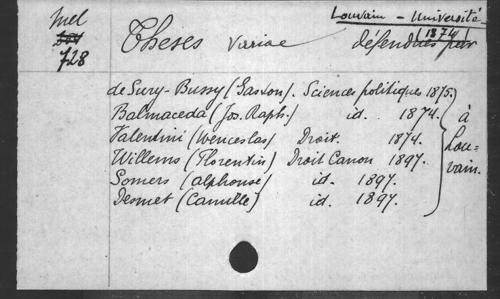 Louvain - Université
(1874)
Mel
728
Theses variae défendues par
de Sury-Bussy (Gaston). Sciences politiques 1875.
Balmaceda (Jos. Raph.) id. 1874.
Valentini (Wenceslas) Droit. 1874.
Willems (Florentin) Droit Canon 1897.
Somers (Alphonse) id. 1897.
Desmet (Camille) id. 1897.
à
Lou-
vain.